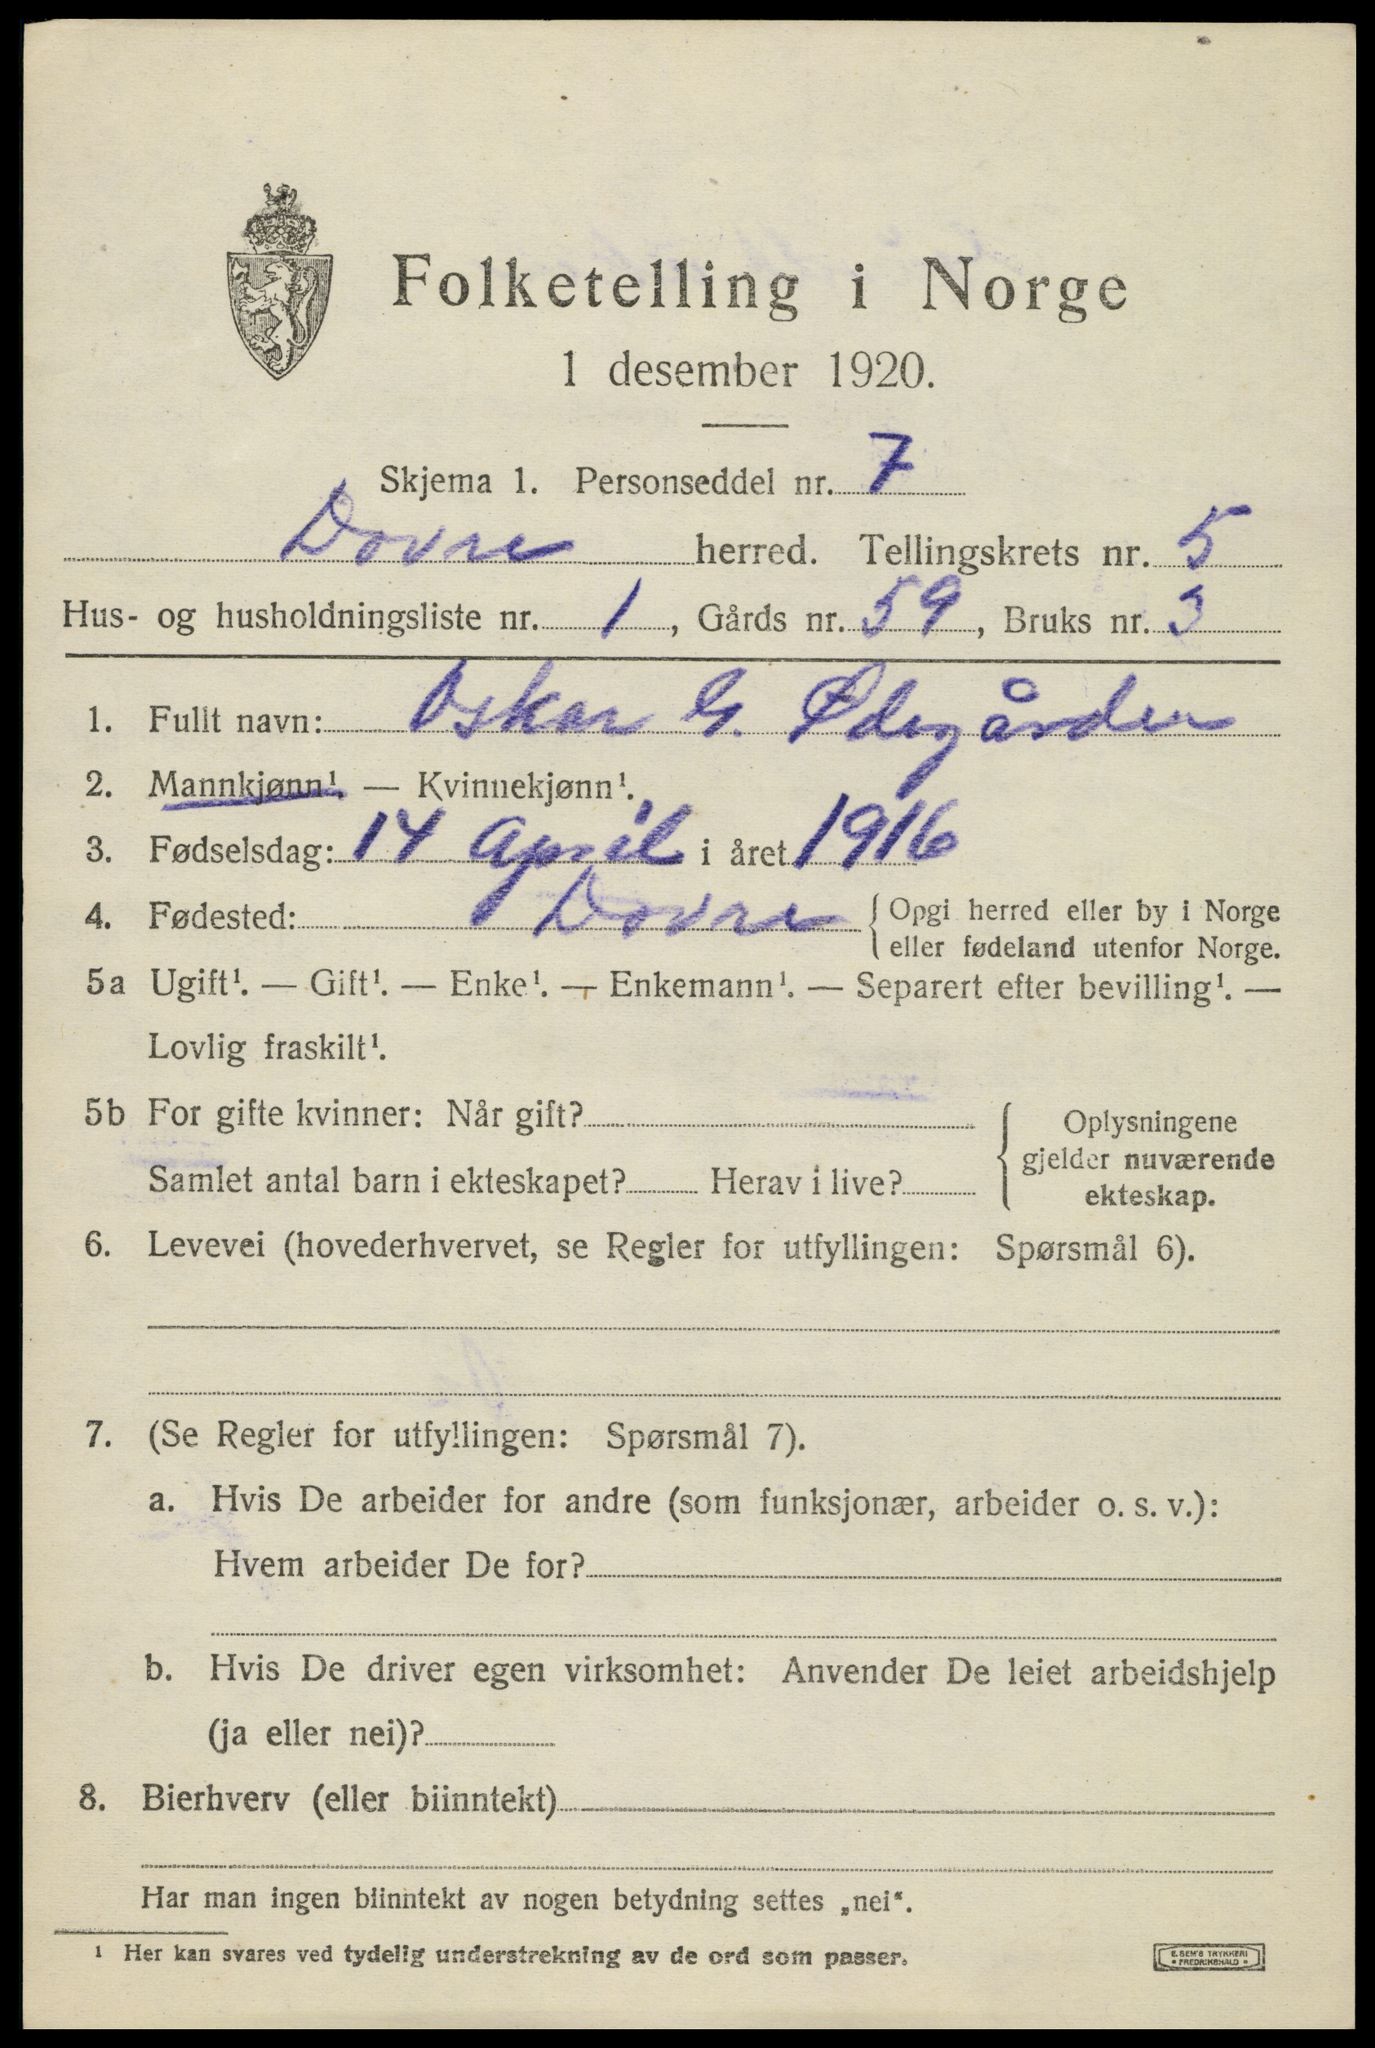 Folketelling i Norge
1 desember 1920.
Skjema 1. Personseddel nr. 7
Dovre herred. Tellingskrets nr. 5
Hus- og husholdningsliste nr. 1, Gårds nr. 59, Bruks nr. 3
1. Fullt navn: Oskar G. Ødegården
2. Mannkjønn¹. — Kvinnekjønn¹.
3. Fødselsdag: 14 april i året 1916
4. Fødested: Dovre {Opgi herred eller by i Norge
eller fødeland utenfor Norge.
5a Ugift¹. — Gift¹. — Enke¹. — Enkemann¹. — Separert efter bevilling¹. —
Lovlig fraskilt¹.
5b For gifte kvinner: Når gift?
Samlet antal barn i ekteskapet? Herav i live?
{Oplysningene
gjelder nuværende
ekteskap.
6. Levevei (hovederhvervet, se Regler for utfyllingen: Spørsmål 6).
7. (Se Regler for utfyllingen: Spørsmål 7).
a. Hvis De arbeider for andre (som funksjonær, arbeider o. s. v.):
Hvem arbeider De for?
b. Hvis De driver egen virksomhet: Anvender De leiet arbeidshjelp
(ja eller nei)?
8. Bierhverv (eller biinntekt)
Har man ingen biinntekt av nogen betydning settes „nei“.
¹ Her kan svares ved tydelig understrekning av de ord som passer.
E. SEM'S TRYKKERI
• FREDRIKSHALD •